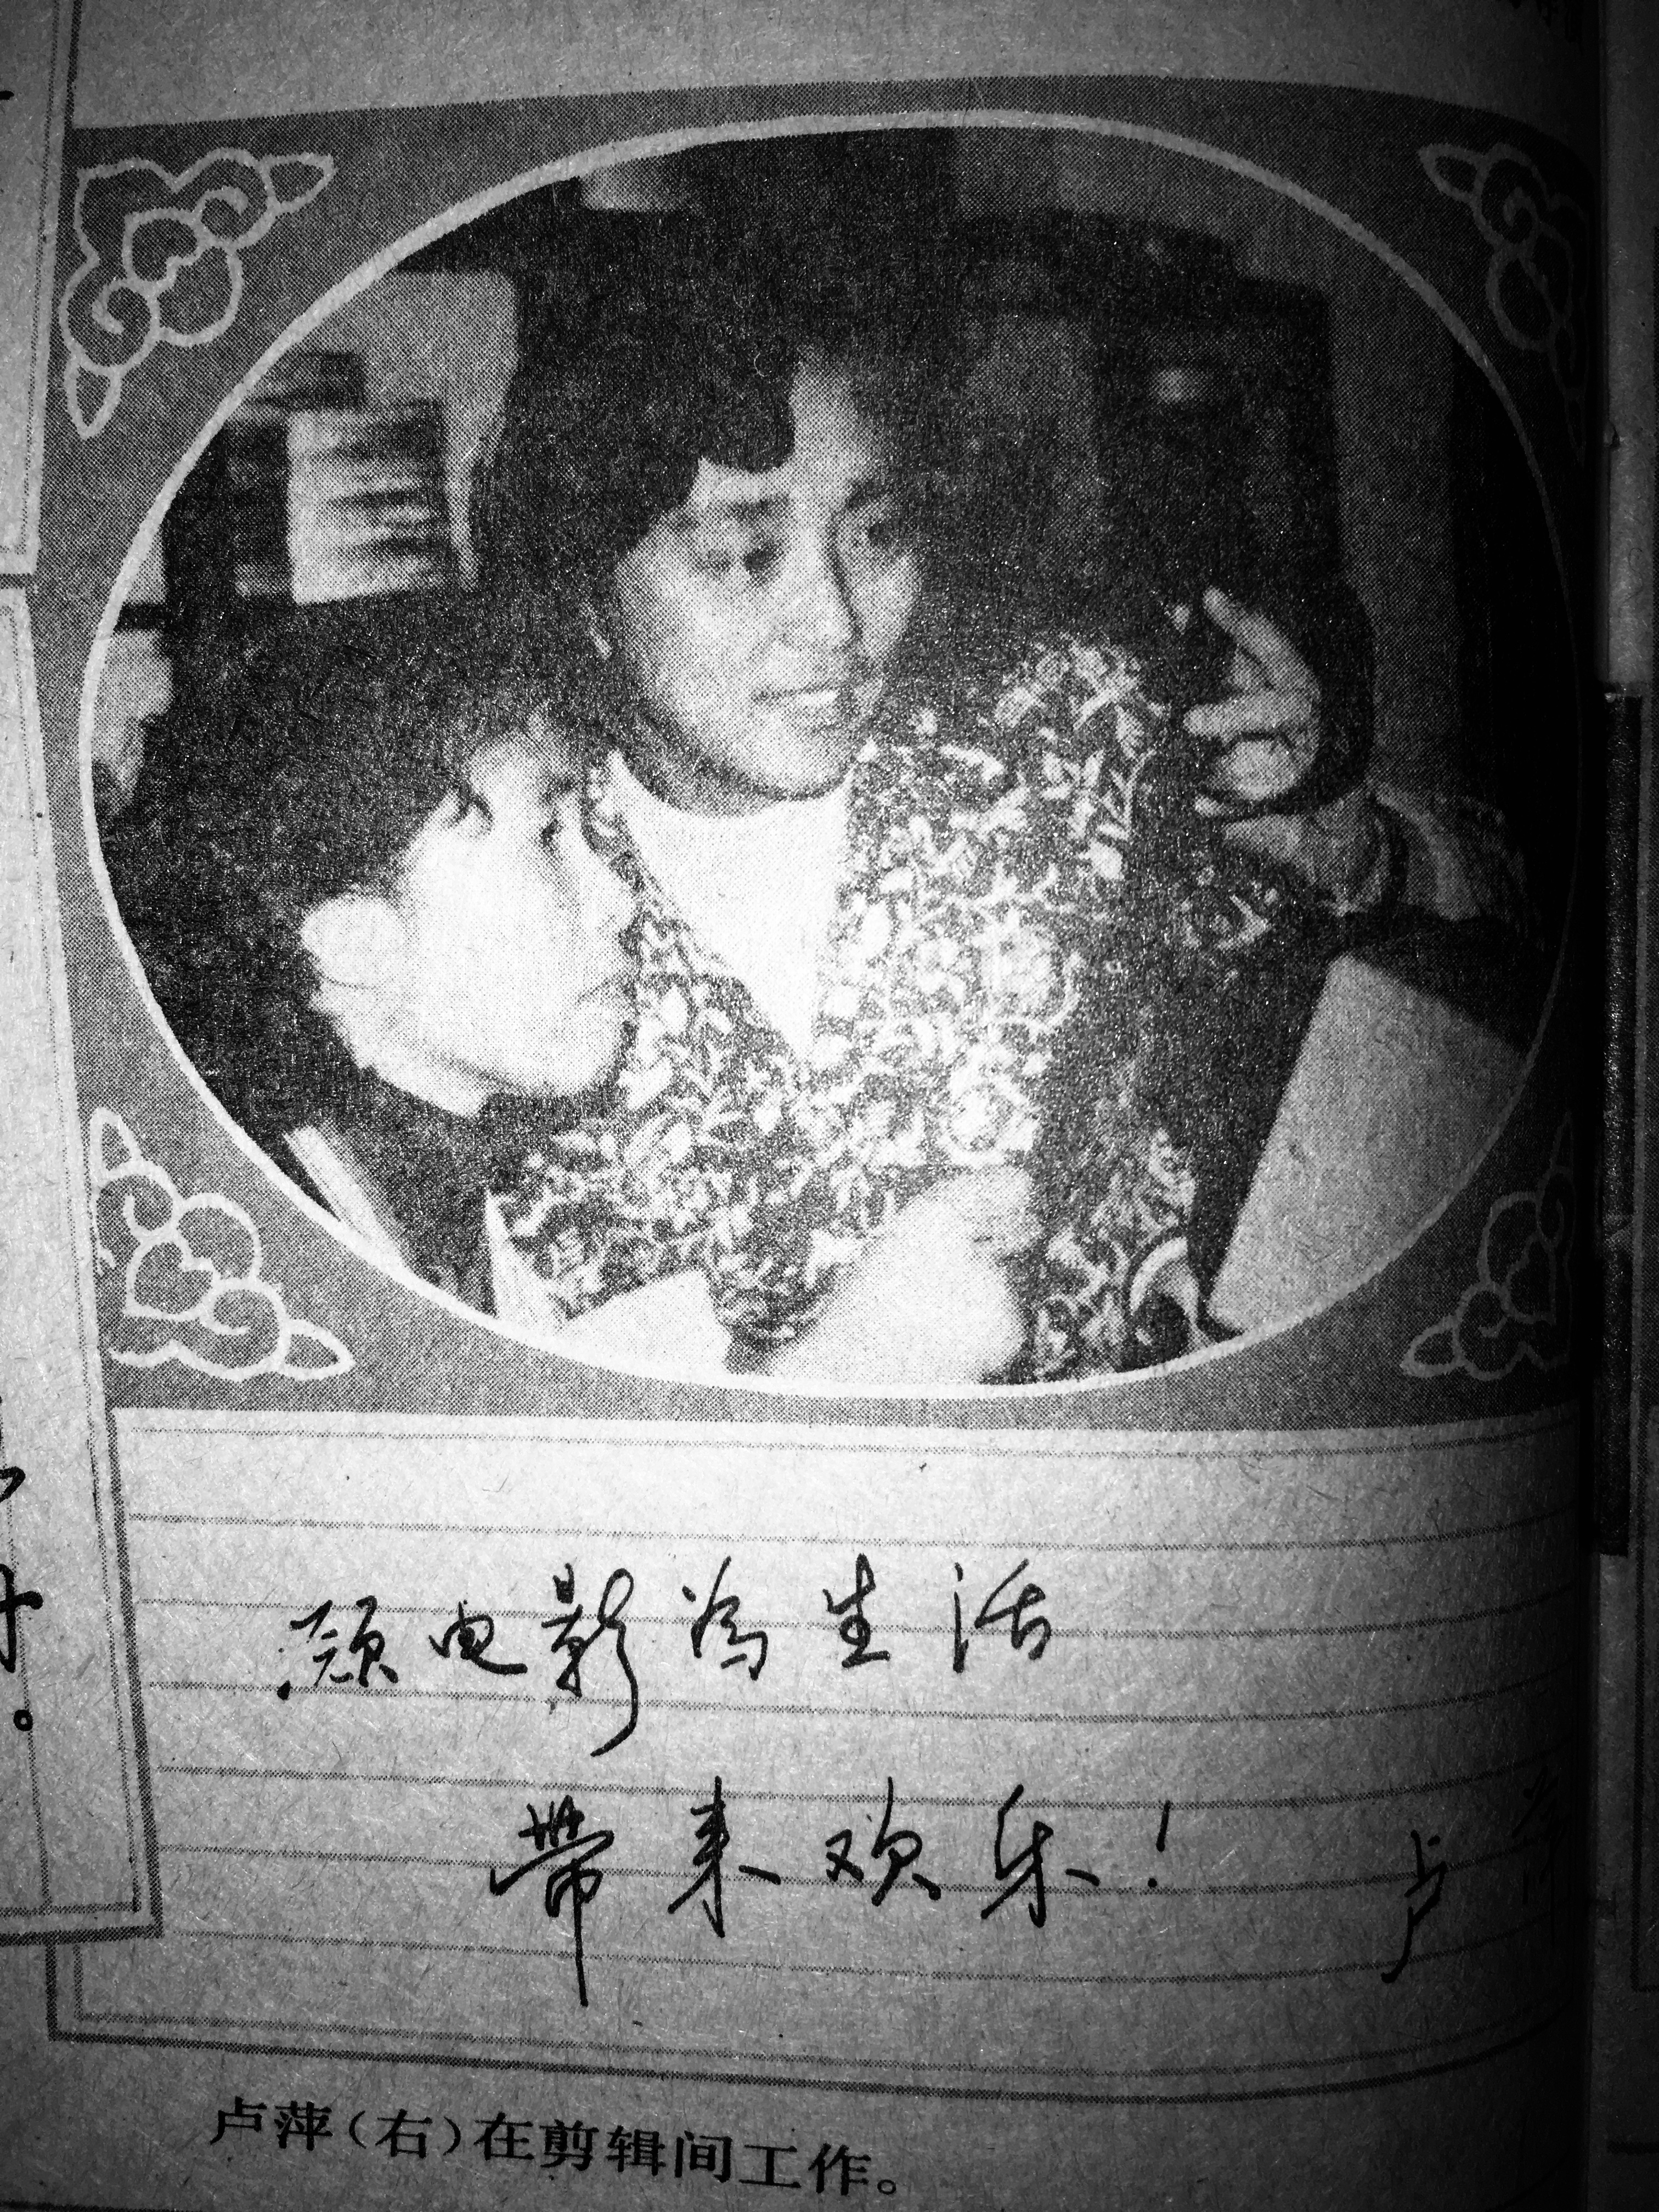 愿电影为生活
带来欢乐！
卢
卢萍(右)在剪辑间工作。